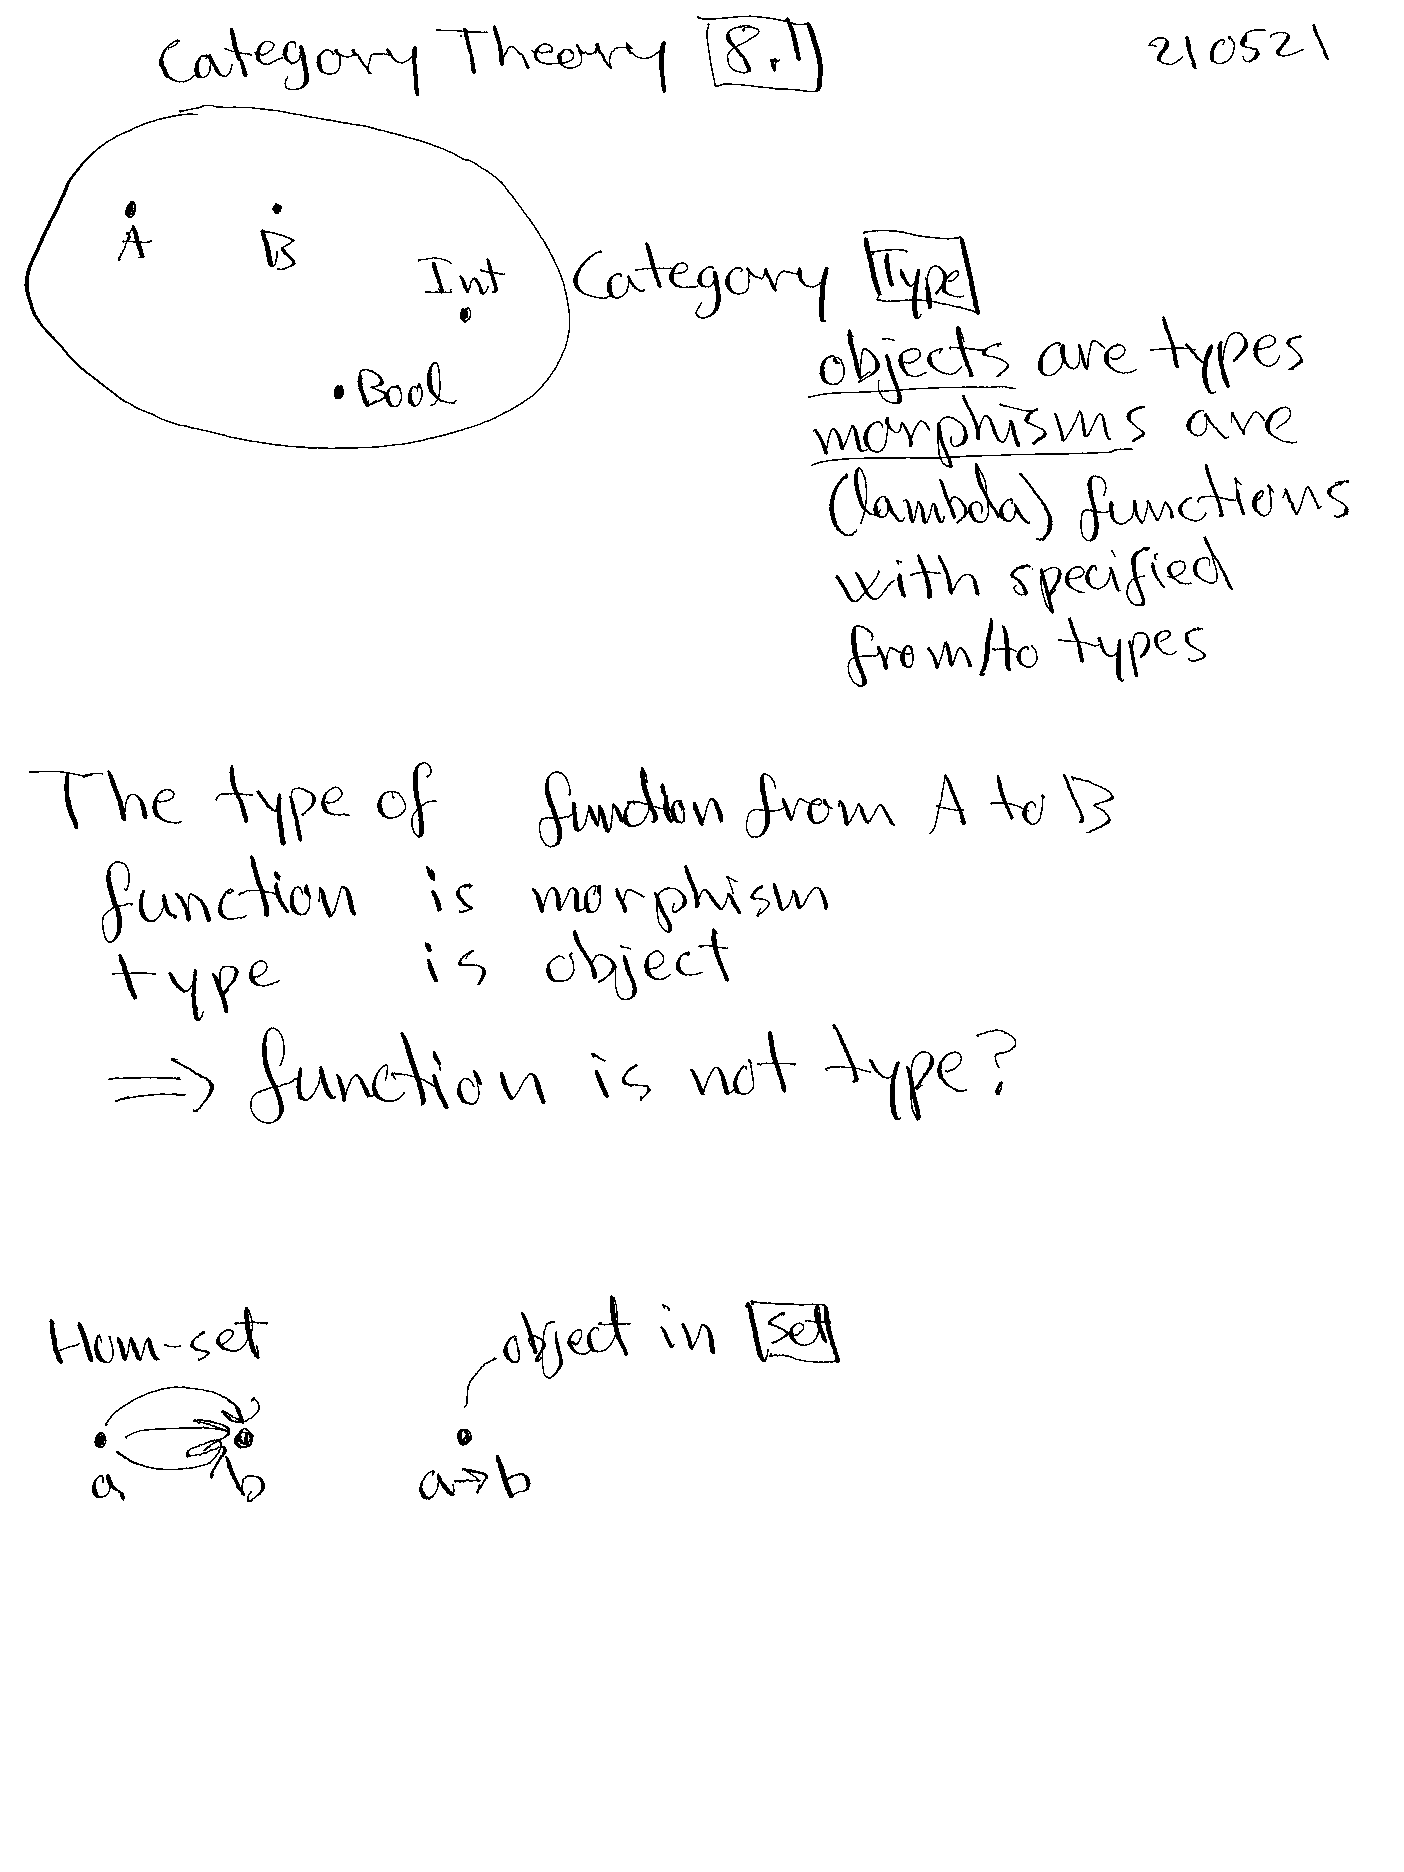 Category Theory 8.1
210521
A
B
Int
Bool
Category Type
objects are types
morphisms are
(lambda) functions
with specified
from/to types
The type of function from A to B
function is morphism
type is object
⇒ function is not type?
Hom-set
object in Set
a
b
a→b